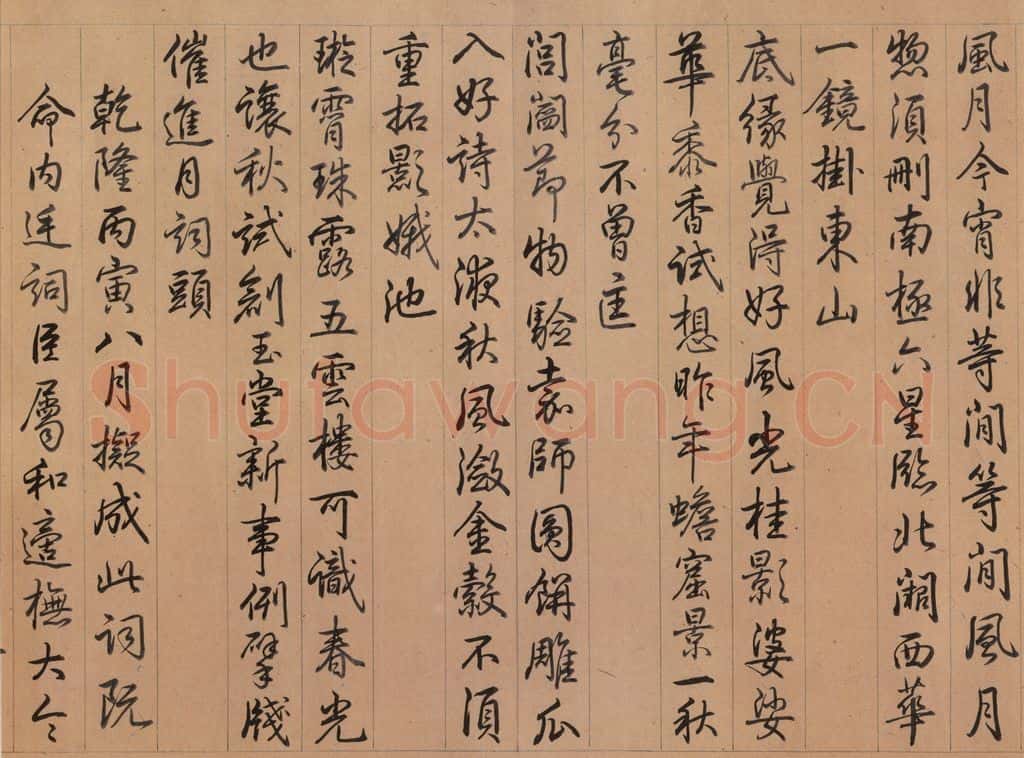 風月今宵非等閒等閒風月
惣須刪南極六星臨北闕西華
一鏡掛東山
底緣覺得好風光桂影婆娑
華黍香試想昨年蟾窟景一秋
毫分不曾匡
閭閻節物驗嘉師圓餅雕瓜
入好詩太液秋風瀲金縠不須
重拓影娥池
璇霄珠露五雲樓可識春光
也讓秋試創玉堂新事例擘牋
催進月詞頭
乾隆丙寅八月擬成此詞既
命内廷詞臣屬和適橅大令
Shufawang.CN